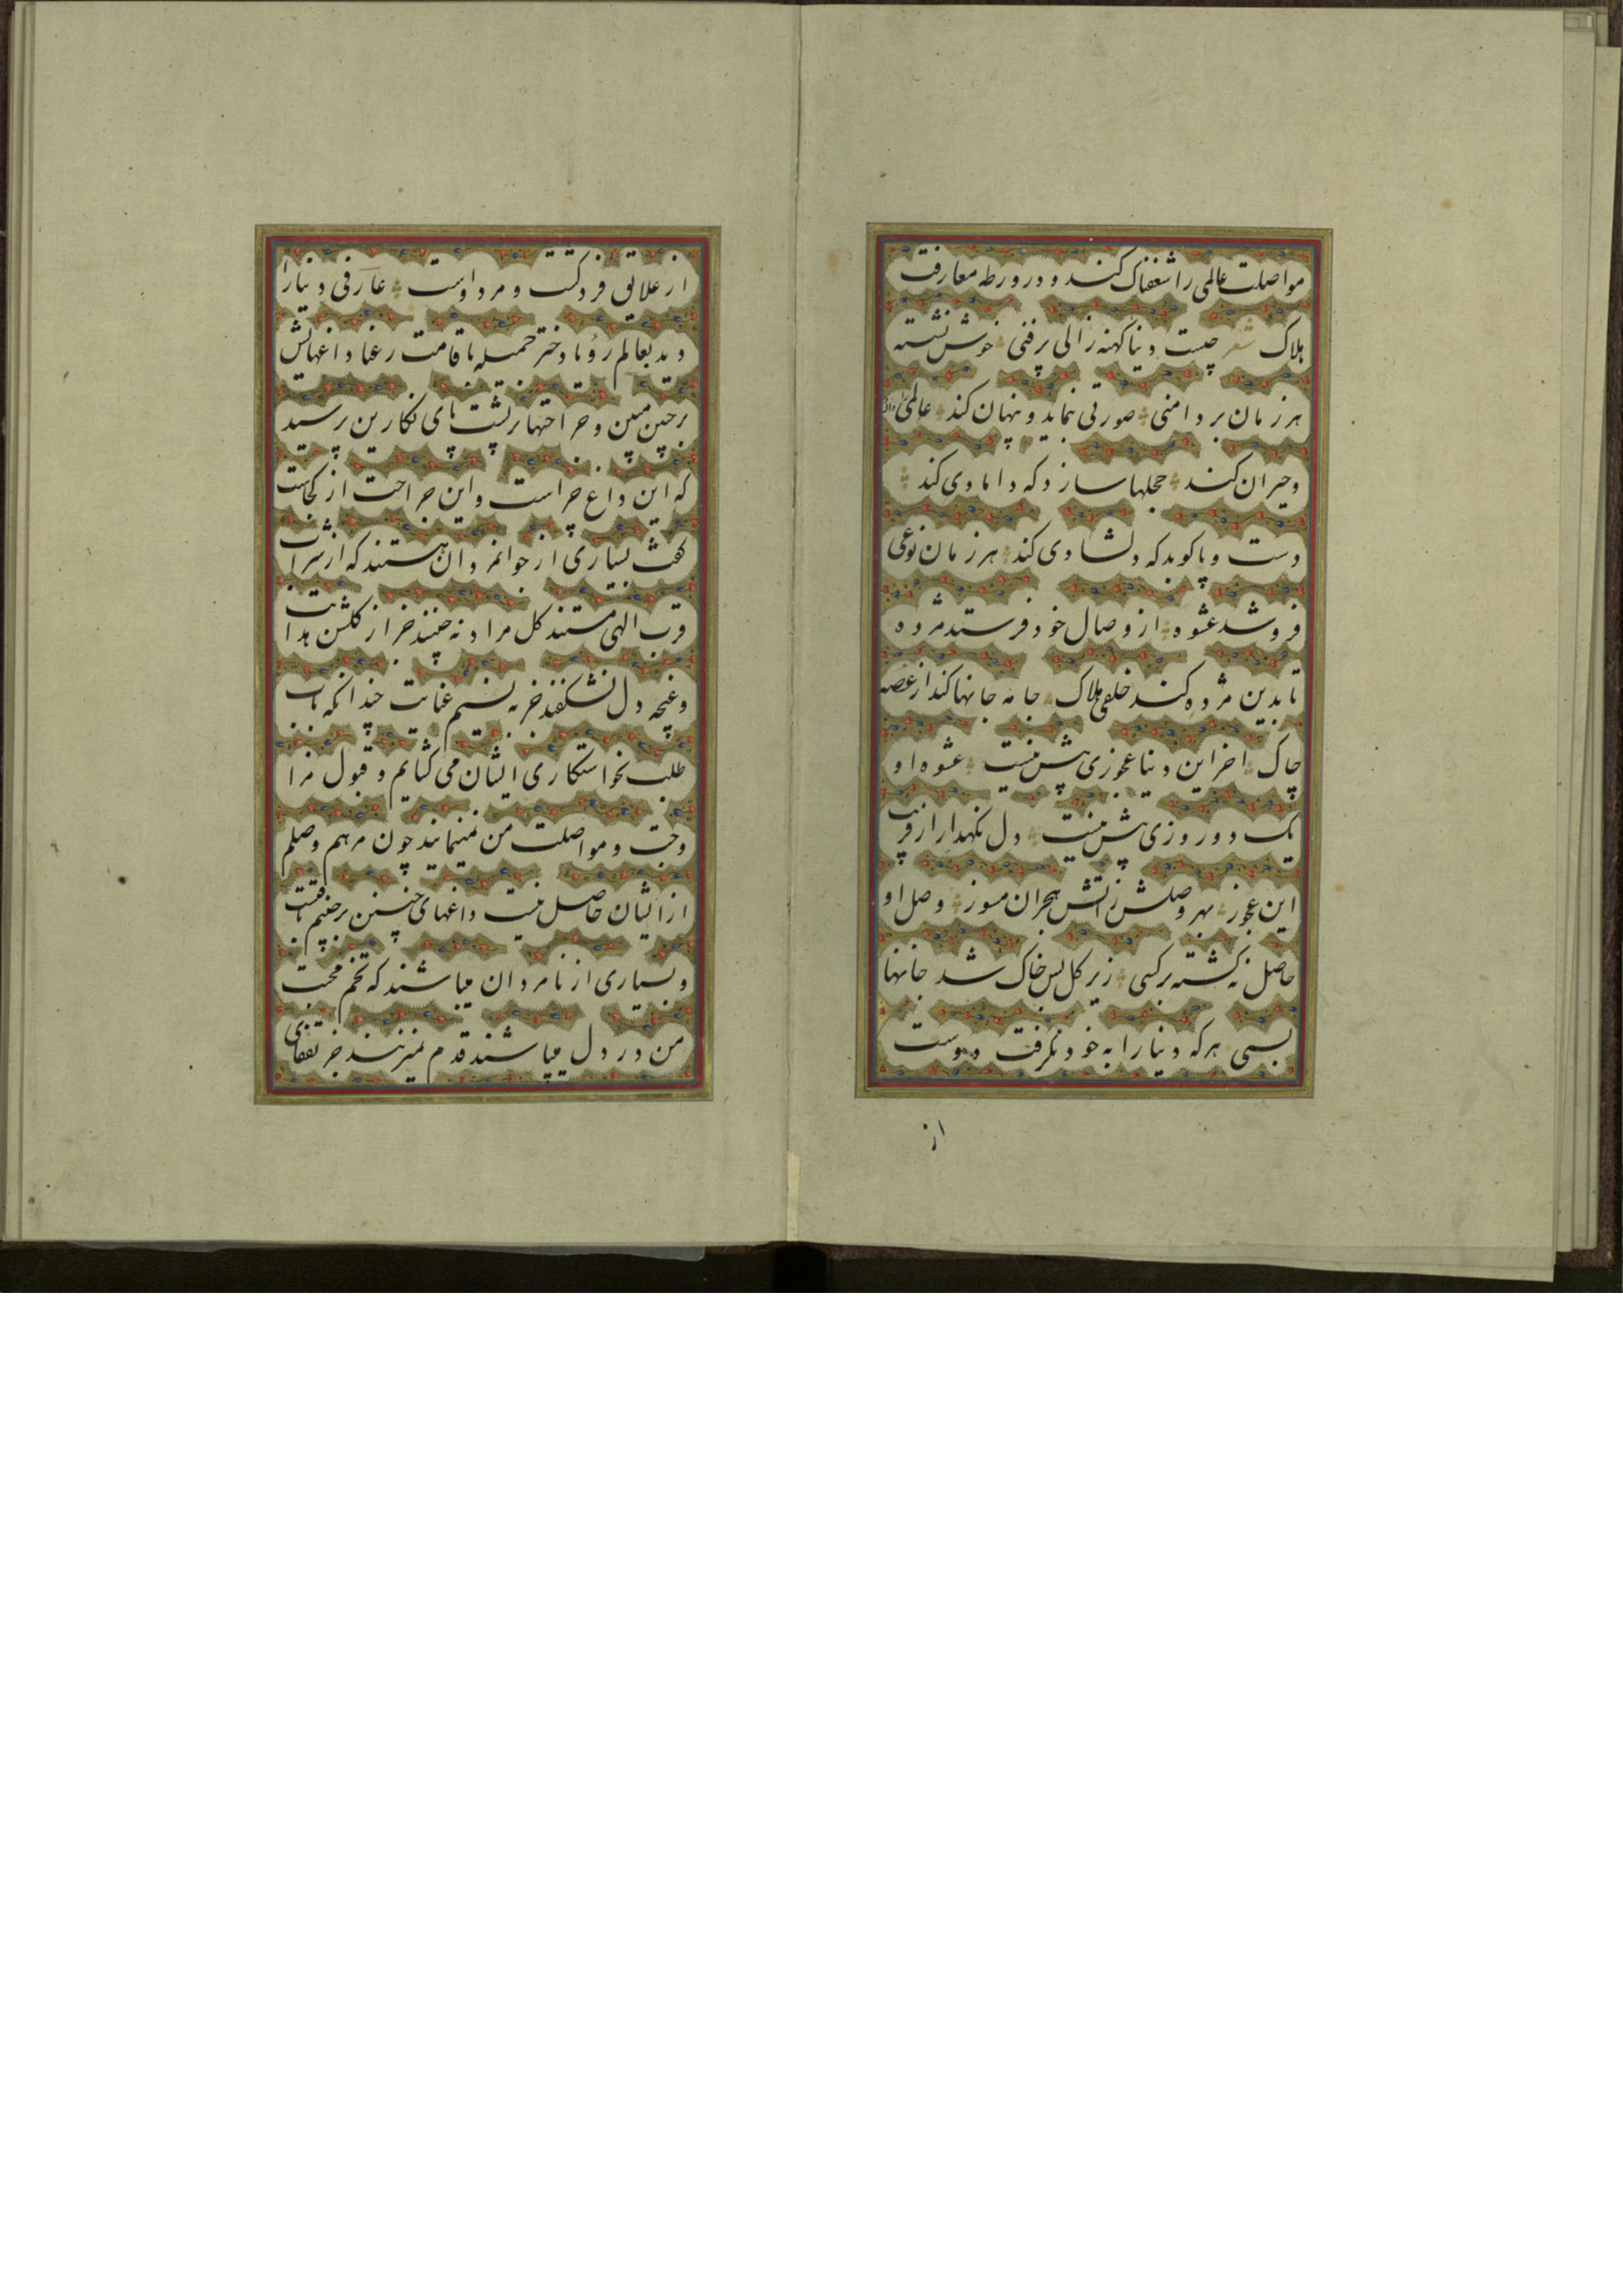 مواصلت عالمی را شغفناک کند و در ورطه معارفت
هلاک شعر چیست دنیا کهنه زالی پرفنی خوش نشسته
هر زمان بر دامنی صورتی نماید و نهان کند عالمی را واله
و حیران کند حجلها سازد که دامادی کند
دست و پا کوبد که دلشادی کند هر زمان نوعی
فروشد عشوه از وصال خود فرستد مژده
تا بدین مژده کند خلقی هلاک جامه جانها کند از غصه
چاک اخر این دنیا عجوزی بیش نیست عشوه او
یک دو روزی بیش نیست دل نگهدار از فریب
این عجوز بهر وصلش ز اتش هجران مسوز وصل او
حاصل نه گشته بر کسی زیر گل بس خاک شد جانها
بسی هر که دنیا را به خود نگرفت دوست
از
از علایق فرد گشت و مرد اوست عارفی دنیا را
دید بعالم رؤیا دختر جمیله با قامت رعنا داغهایش
بر جبین مبین و جراحتها بر پشت پای نگارین پرسید
که این داغ چراست و این جراحت از کجاست
گفت بسیاری از جوانمردان هستند که از شراب
قرب الهی مستند گل مراد نه چینند جز از گلشن هدایت
و غنچه دل نشکفند جز به نسیم عنایت چندانکه باب
طلب بخواستگاری ایشان می گشایم و قبول مرا
وجب و مواصلت من نمینمایند چون مرهم وصلم
از ایشان حاصل نیست داغهای چنین بر جبینم یافتست
و بسیاری از نامردان میباشند که تخم محبت
من در دل میپاشند قدم نمیزنند جز بقفای